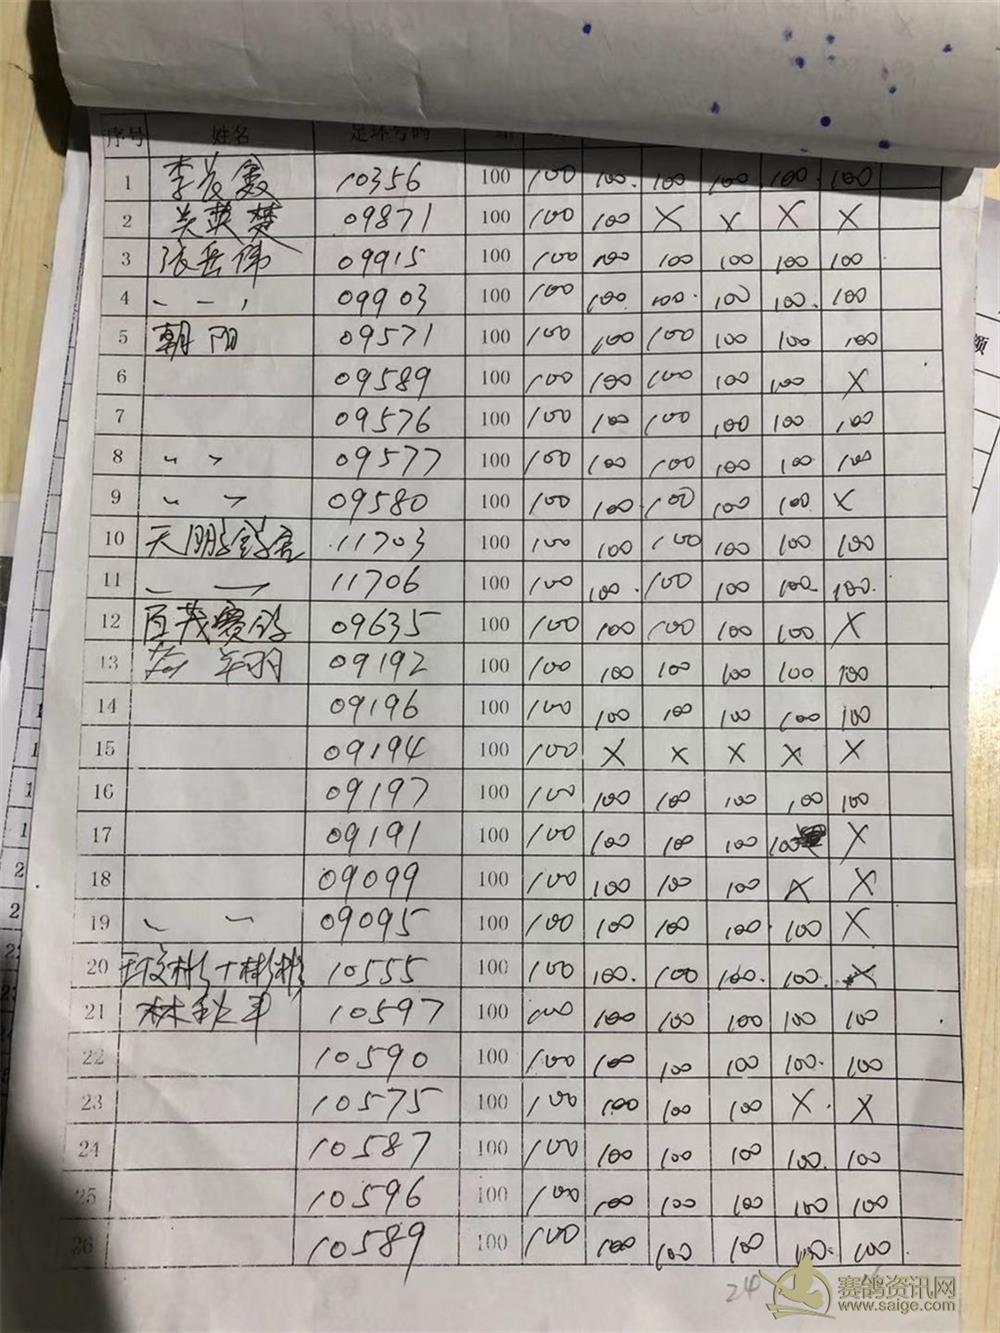 序号 姓名 足环号码
1 李 鑫 10356 100 100 100. 100 100 100. 100
2 吴英楚 09871 100 100 100 X X X X
3 张岳伟 09915 100 100 100 100 100 100 100
4 〃 09903 100 100 100. 100. 100 100. 100
5 朝阳 09571 100 100 100 100 100 100 100
6 09589 100 100 100 100 100 100 X
7 09576 100 100 100 100 100 100 100
8 〃 09577 100 100 100 100 100 100 100
9 〃 09580 100 100 100 100 100 100 X
10 天鹏 11703 100 100 100 100 100 100 100
11 〃 11706 100 100 100. 100 100 100 100.
12 百茂赛鸽 09635 100 100 100 100 100 100 X
13 翔 09192 100 100 100 100 100 100 100
14 09196 100 100 100 100 100 100 100
15 09194 100 100 X X X X X
16 09197 100 100 100 100 100 100 100
17 09191 100 100 100 100 100 100 X
18 09099 100 100 100 100 100 X X
19 〃 09095 100 100 100 100 100 100 X
20 10555 100 100 100. 100 100. 100. X
21 林 10597 100 100 100 100 100 100 100
22 10590 100 100 100 100 100 100. 100
23 10575 100 100 100 100 100 X. X
24 10587 100 100 100 100 100 100. 100
25 10596 100 100 100 100 100 100 100
26 10589 100 100 100 100 100 100. 100.
24
赛鸽资讯网
www.saige.com